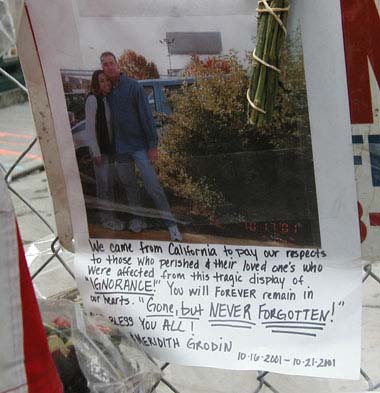 10 17 '01
We came from California to pay our respects
to those who perished & their loved one's who
were affected from this tragic display of
"IGNORANCE!" You will FOREVER remain in
our hearts. "Gone, but NEVER FORGOTTEN!"
BLESS YOU ALL!
MERIDITH GRODIN
10-16-2001-10-21-2001